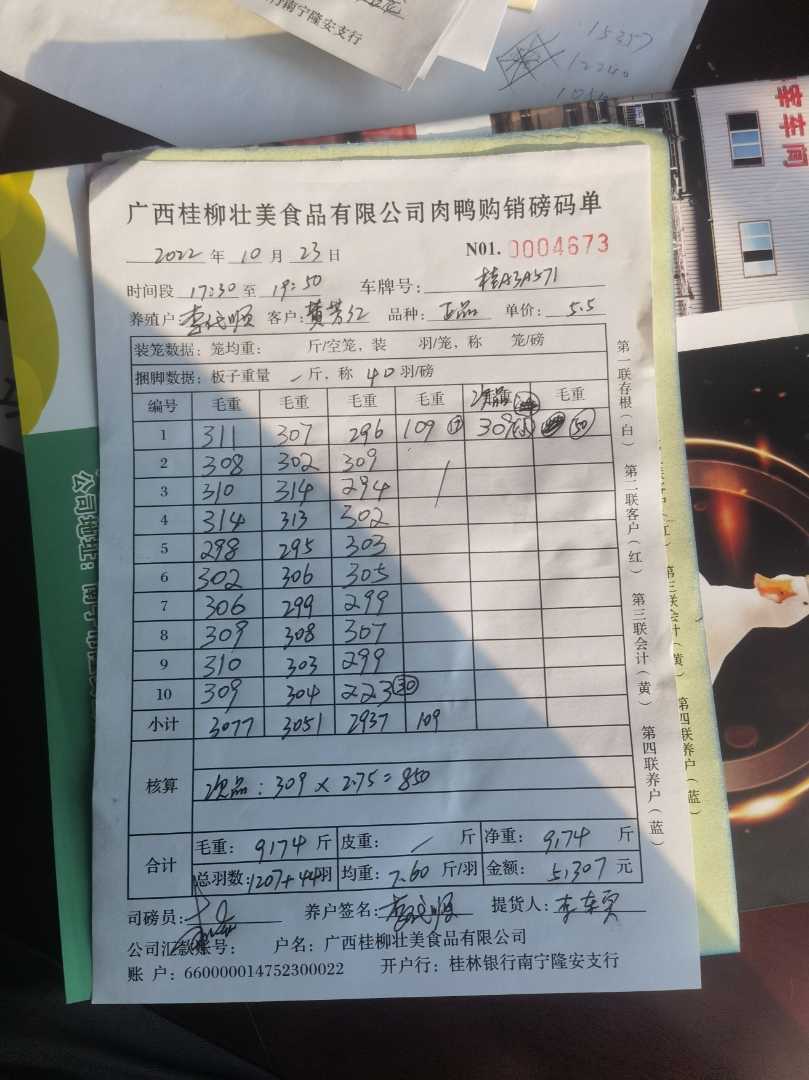 南宁隆安支行
15357
12240
宰车间
广西桂柳壮美食品有限公司肉鸭购销磅码单
2022年10月23日 N01.0004673
时间段 17:30至19:50 车牌号: 桂A3A571
养殖户 客户: 黄芳红 品种: 正品 单价: 5.5
装笼数据: 笼均重: 斤/空笼, 装 羽/笼, 称 笼/磅
捆脚数据: 板子重量 / 斤, 称 40 羽/磅
编号 毛重 毛重 毛重 毛重 次品 毛重
1 311 307 296 109 309 50
2 308 302 309
3 310 314 294
4 314 313 302
5 298 295 303
6 302 306 305
7 306 299 299
8 309 308 307
9 310 303 299
10 309 304 223 30
小计 3077 3051 2937 109
核算 次品: 309 x 2.75 = 850
合计 毛重: 9174 斤 皮重: / 斤 净重: 9174 斤
总羽数: 1207+44羽 均重: 7.60 斤/羽 金额: 51307 元
司磅员: 养户签名: 提货人:
公司汇款账号: 户名: 广西桂柳壮美食品有限公司
账 户: 660000014752300022 开户行: 桂林银行南宁隆安支行
第一联存根(白) 第二联客户(红) 第三联会计(黄) 第四联养户(蓝)
第四联养户(蓝)
公司地址: